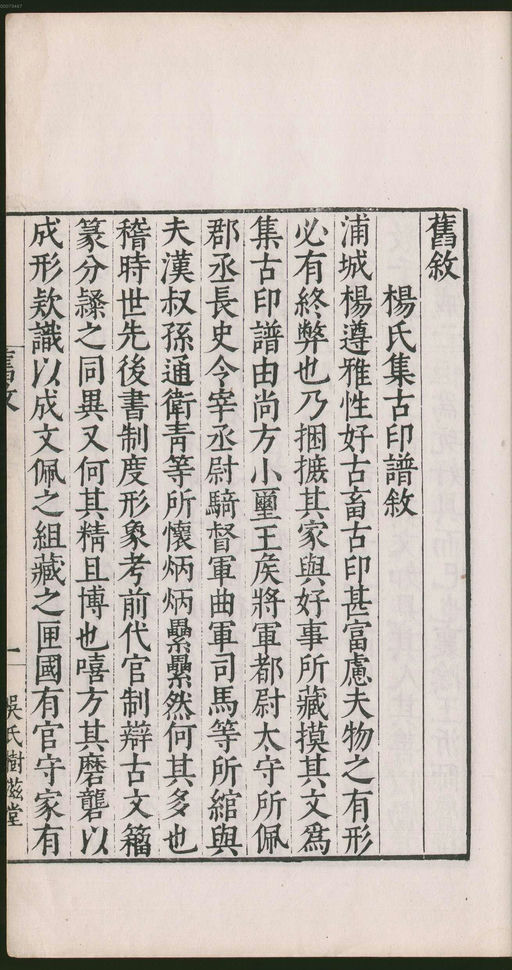 舊敘
楊氏集古印譜敘
浦城楊遵雅性好古畜古印甚富慮夫物之有形
必有終弊也乃捆摭其家與好事所藏摸其文爲
集古印譜由尚方小璽王矦將軍都尉太守所佩
郡丞長史令宰丞尉騎督軍曲軍司馬等所綰與
夫漢叔孫通衛青等所懷炳炳纍纍然何其多也
稽時世先後書制度形象考前代官制辯古文籀
篆分隸之同異又何其精且博也嘻方其磨礱以
成形欵識以成文佩之組藏之匣國有官守家有
舊敘
一
吳氏樹滋堂
00079467